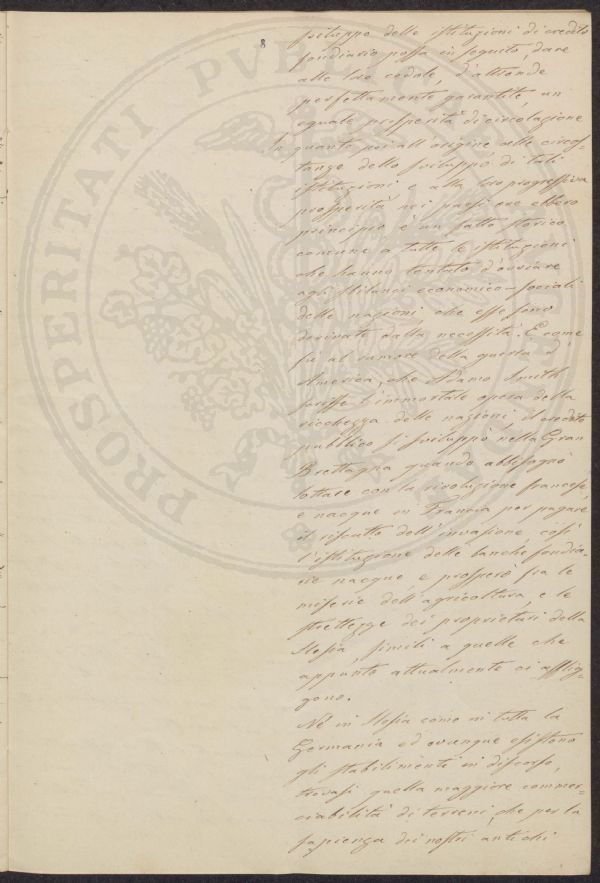 8
sviluppo delle istituzioni di credito
fondiario possa in seguito, dare
alle loro cedole, d'altronde
perfettamente garantite, un
eguale prosperità di circolazione
In quanto poi all'origine alle circos=
tanze dello sviluppo di tali
istituzioni e alla loro progressiva
prosperità nei paesi ove ebbero
principio è un fatto storico
comune a tutte le istituzioni
che hanno tentato d'ovviare
agli sbilanci economico-sociali
delle nazioni che esse sono
derivate dalla necessità. E come
fù al rumore della guerra d'
America, che Adamo Smith
scrisse l'immortale opera della
ricchezza delle nazioni, il credito
pubblico si sviluppò nella Gran
Brettagna quando abbisognò
lottare con la rivoluzione francese,
e nacque in Francia per pagare
il riscatto dell'invasione, così
l'istituzione delle banche fondia=
rie nacque, e prosperò fra le
miserie dell'agricoltura, e le
strettezze dei proprietari della
Slesia, simili a quelle che
appunto attualmente ci afflig=
gono.
Nè in Slesia come in tutta la
Germania ed ovunque esistono
gli stabilimenti in discorso,
trovasi quella maggiore commer=
ciabilità di terreni, che per la
sapienza dei nostri antichi
PROSPERITATI PVBLIC